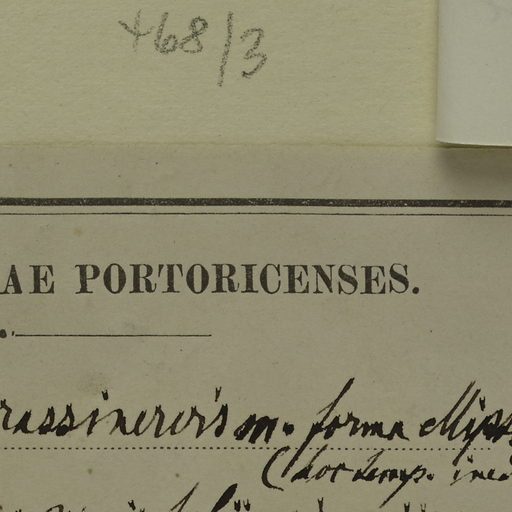 +68/3
AE PORTORICENSES.
rassinervis m. forma ellipt
(hoc temp. ined